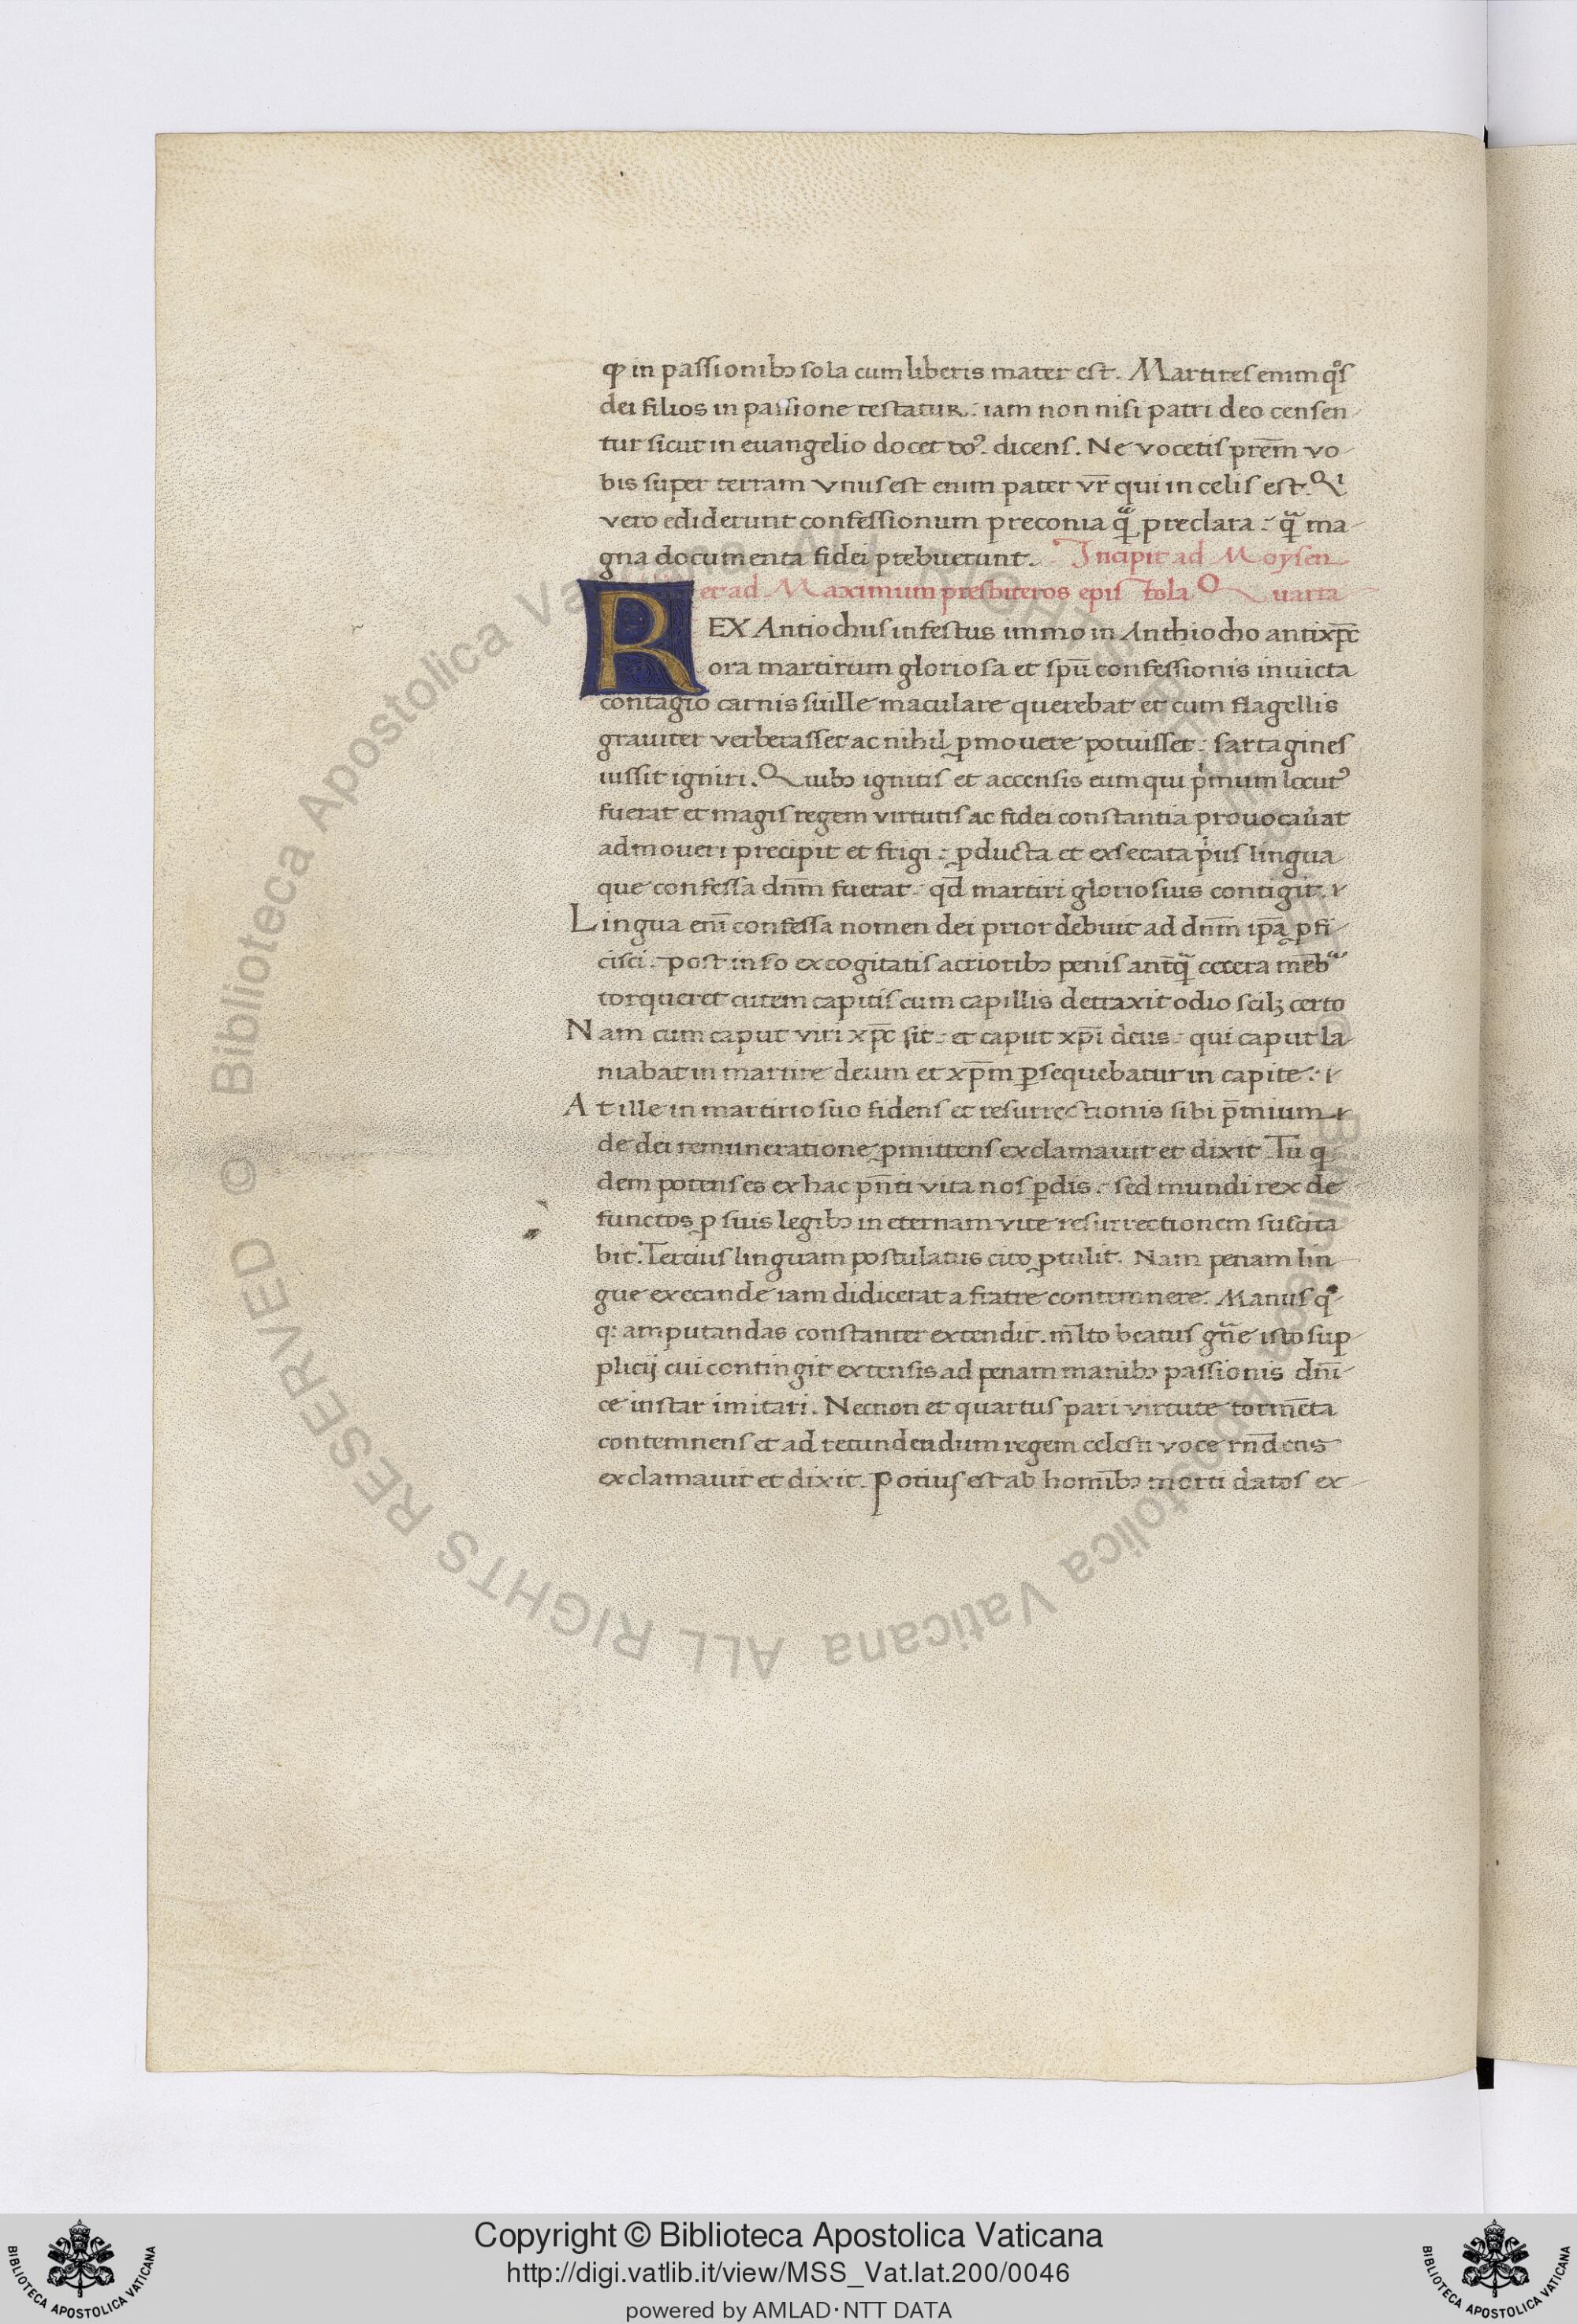 ꝙ in passionibꝫ sola cum liberis mater est. Martires enim qͦs
dei filios in passione testatur. iam non nisi patri deo censen
tur sicut in euangelio docet dn̄s dicens. Ne vocetis prēm vo
bis super terram vnus est enim pater vr̄ qui in celis est. Qi
vero ediderunt confessionum preconia q̄ preclara. q̄ ma
gna documenta fidei prebuerunt. Incipit ad Moysen
et ad Maximum presbiteros epistola Quarta
REX Antiochus infestus immo in Anthiocho antixp̄c
ora martirum gloriosa et spū confessionis inuicta
contagio carnis suille maculare querebat et cum flagellis
grauiter verberasset ac nihil ꝓmouere potuisset. sartagines
iussit igniri. Quibꝫ ignitis et accensis eum qui pͥmum locutꝰ
fuerat et magis regem virtutis ac fidei constantia prouocau̓at
admoueri precipit et frigi. ꝓducta et exsecata pͥus lingua
que confessa dn̄m fuerat. qd̄ martiri gloriosius contigit.
Lingua eni̅ confessa nomen dei prior debuit ad dn̄m ip̄a ꝓfi
cisci. post in so excogitatis acrioribꝫ penis anteq̄ cetera mēbͣ
torqueret cutem capitis cum capillis detraxit odio scilꝫ certo
Nam cum caput viri xp̄c sit. et caput xp̄i deus. qui caput la
niabat in martire deum et xp̄m ꝑsequebatur in capite.
At ille in martirio suo fidens et resurrectionis sibi p̄mium
de dei remuneratione ꝓmittens exclamauit et dixit Tu q
dem potens es ex hac pn̄ti vita nos ꝑdis. sed mundi rex de
functos ꝓ suis legibꝫ in eternam vite resurrectionem suscita
bit. Tercius linguam postulatus cito ꝓtulit. Nam penam lin
gue execande iam didicerat a fratre contemnere. Manus qͦ
q: amputandas constanter extendit. ml̄to beatus gn̄e isto sup
plicij cui contingit extensis ad penam manibꝫ passionis dn̄i
ce instar imitari. Necnon et quartus pari virtute tormēta
contemnens et ad retundendum regem celesti voce rn̄dens
exclamauit et dixit. Potius est ab homibꝫ morti datos ex
© Biblioteca Apostolica Vaticana ALL RIGHTS RESERVED © Biblioteca Apostolica Vaticana ALL RIGHTS RESERVED
Copyright © Biblioteca Apostolica Vaticana
http://digi.vatlib.it/view/MSS_Vat.lat.200/0046
powered by AMLAD·NTT DATA
BIBLIOTECA APOSTOLICA VATICANA
BIBLIOTECA APOSTOLICA VATICANA